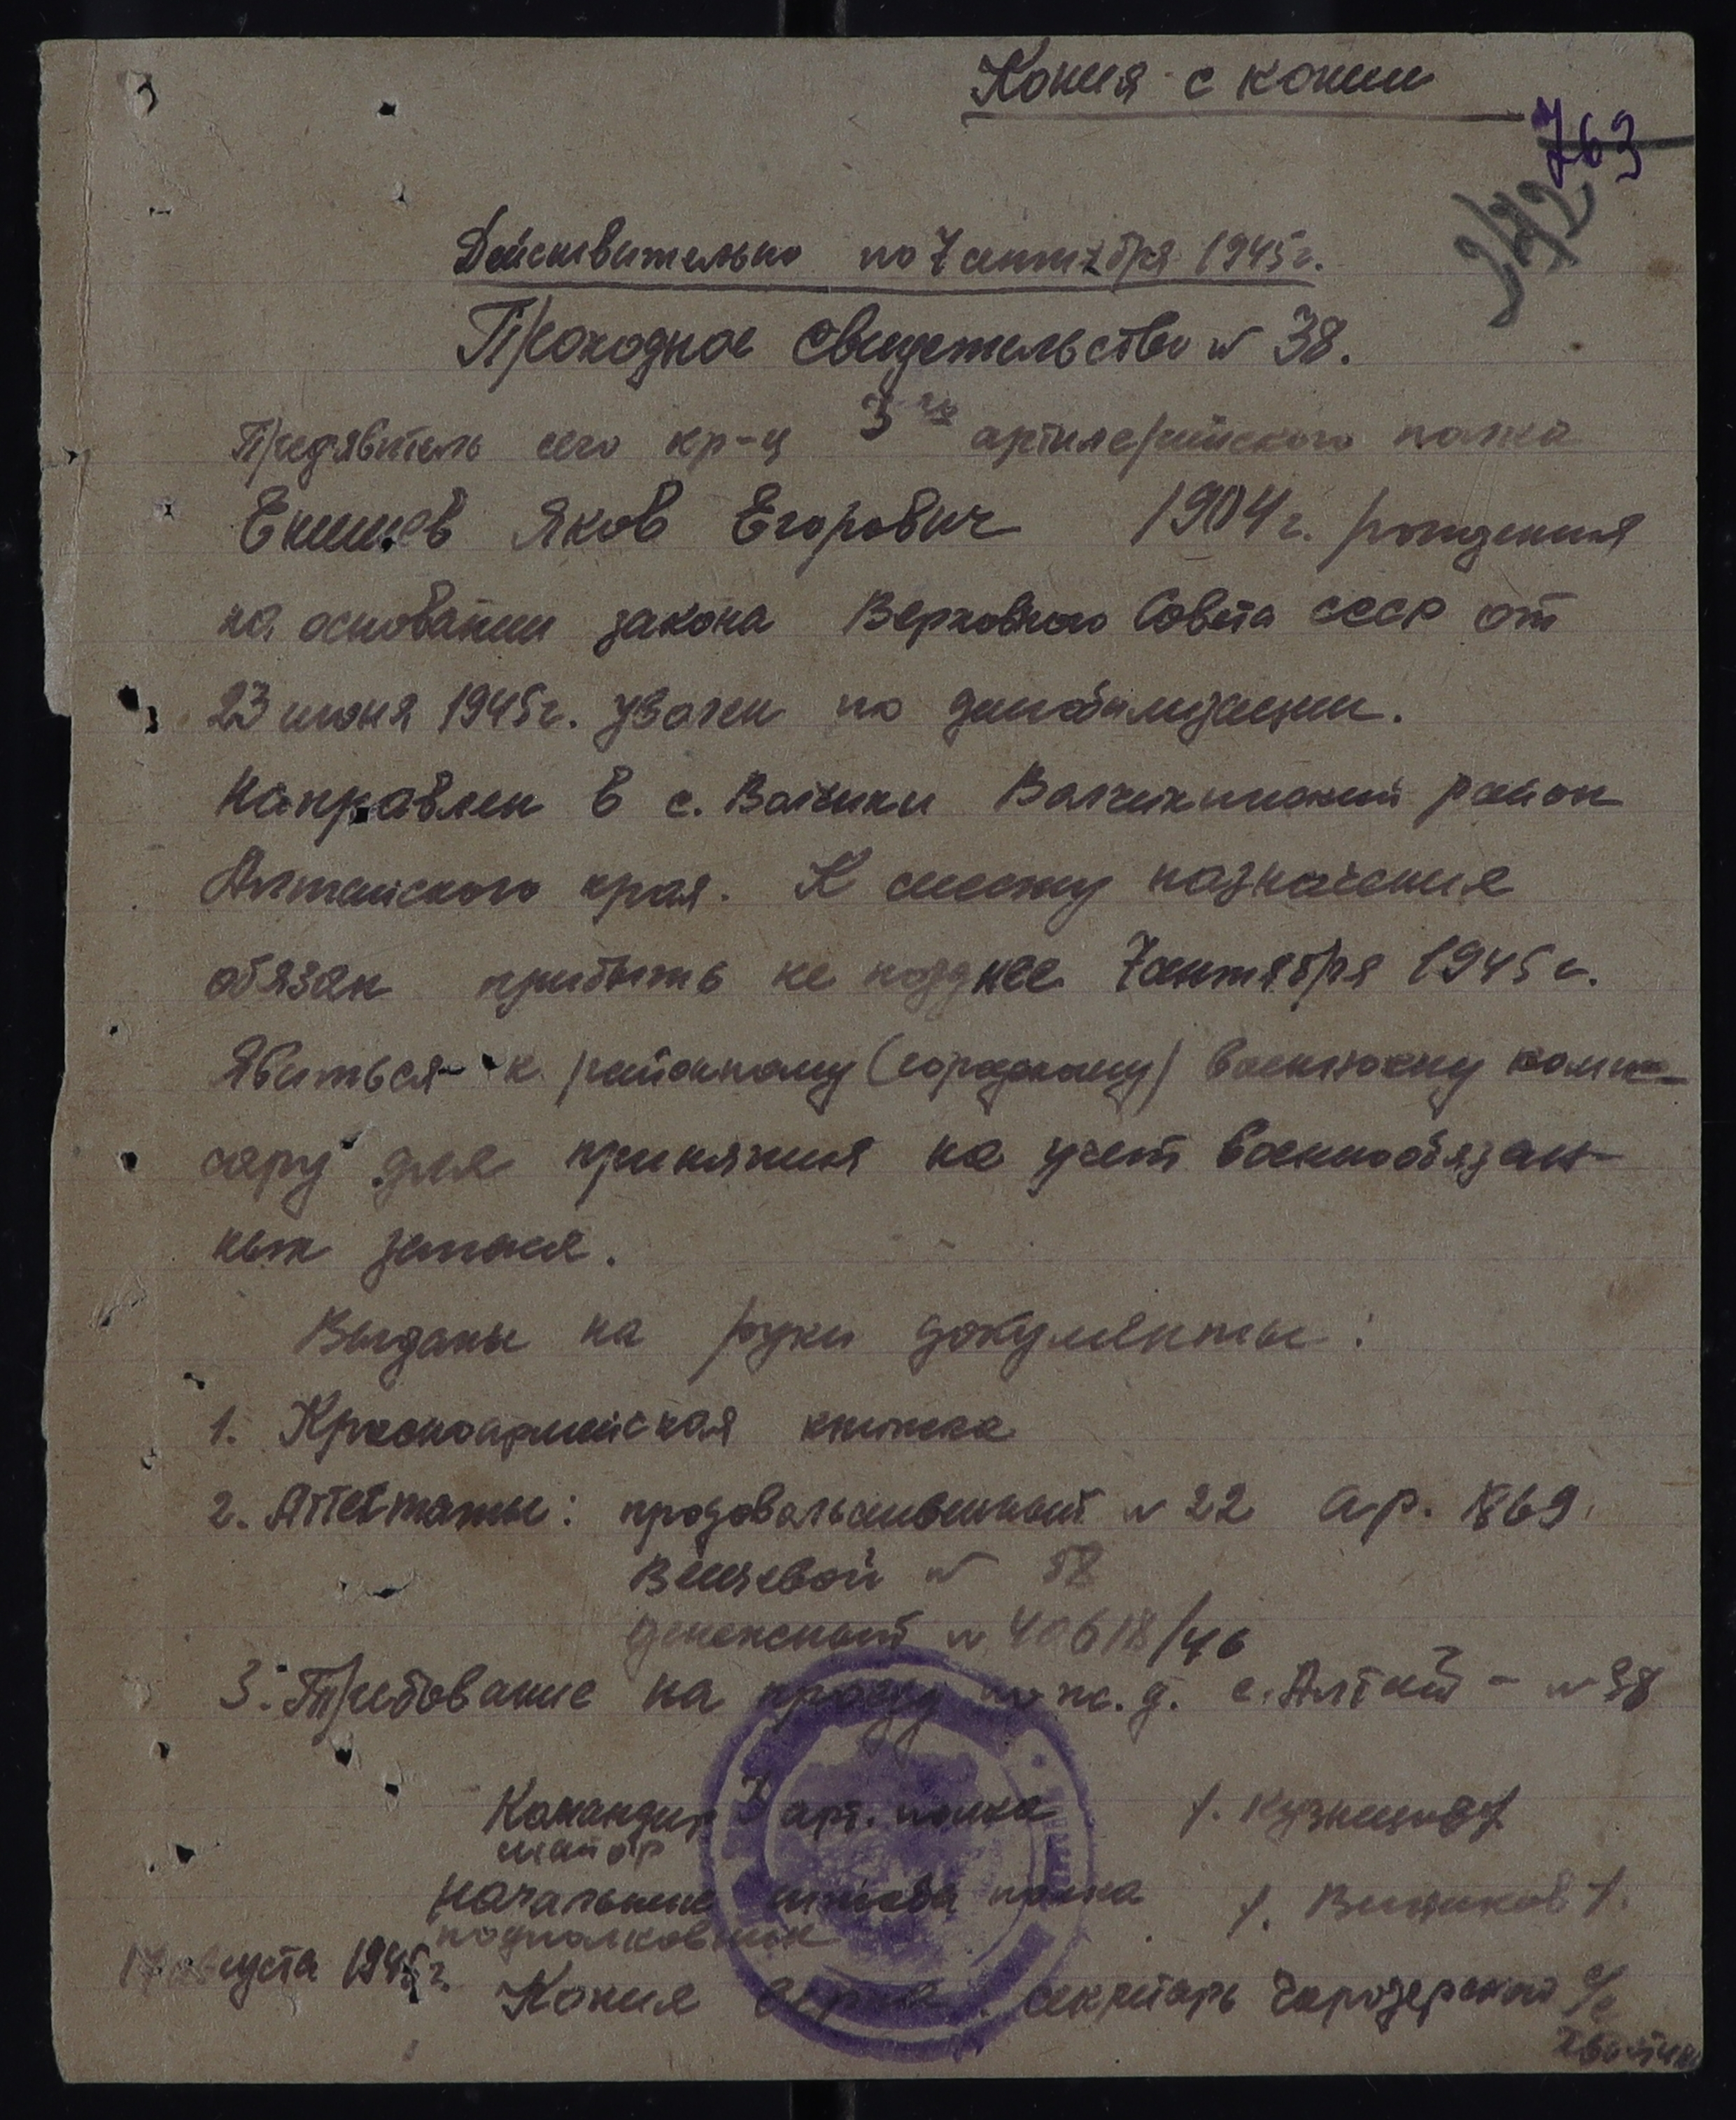 Копия с копии
763
342
Действительно по 7 сентября 1945 г.
Проходное свидетельство № 38.
Предявитель сего кр-ц 3го артилерийского полка
Яков Егорович 1904 г. рождения
на основании закона Верховного Совета СССР от
23 июня 1945 г. уволен по демобилизации.
Направлен в с. Волчиха Волчихинский район
Алтайского края. К месту назначения
обязан прибыть не позднее 7 сентября 1945 г.
Явиться к районному (городскому) военному комис-
сару для принятия на учет военнообязан-
ных запаса.
Выданы на руки документы:
1. Красноармейская книжка
2. Аттестаты: продовольственный № 22 ар. 1869
Вещевой № 58
денежный № 40618/46
3. Требование на проезд по ж.д. с. Алтай - № 38
Командир 3 арт. полка /. Кузнецов /
майор
Начальник штаба полка /. /.
подполковник
17 августа 1945 г.
Копия верна. секретарь с/с